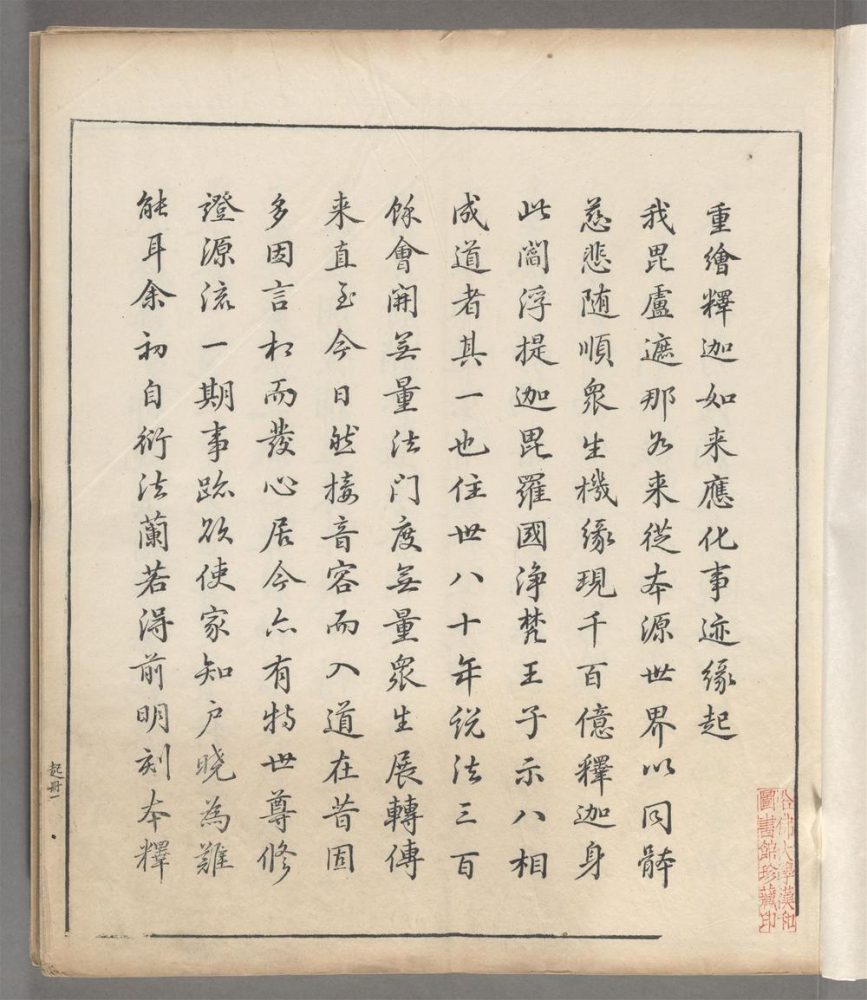 重繪釋迦如来應化事迹緣起
我毘盧遮那如来從本源世界以同體
慈悲随順衆生機緣現千百億釋迦身
此閻浮提迦毘羅國淨梵王子示八相
成道者其一也住世八十年説法三百
餘會開無量法门度無量衆生展轉傳
来直至今日然接音容而入道在昔固
多因言相而發心居今亦有特世尊修
證源流一期事跡欲使家知户曉為難
能耳余初自衍法蘭若得前明刻本釋
起冊一
哈佛大學漢和
圖書館珍藏印